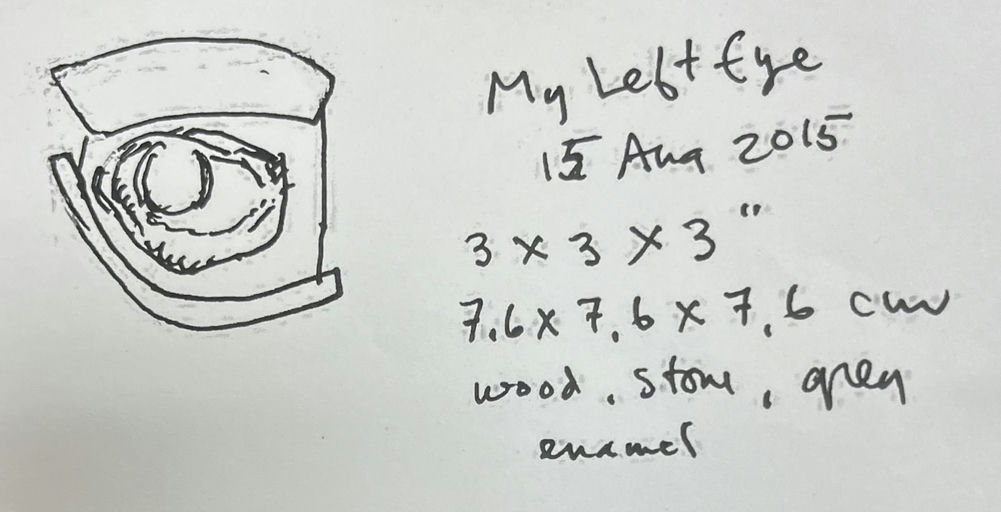 My Left Eye
15 Aug 2015
3 x 3 x 3"
7.6 x 7.6 x 7.6 cm
wood, stone, grey
enamel